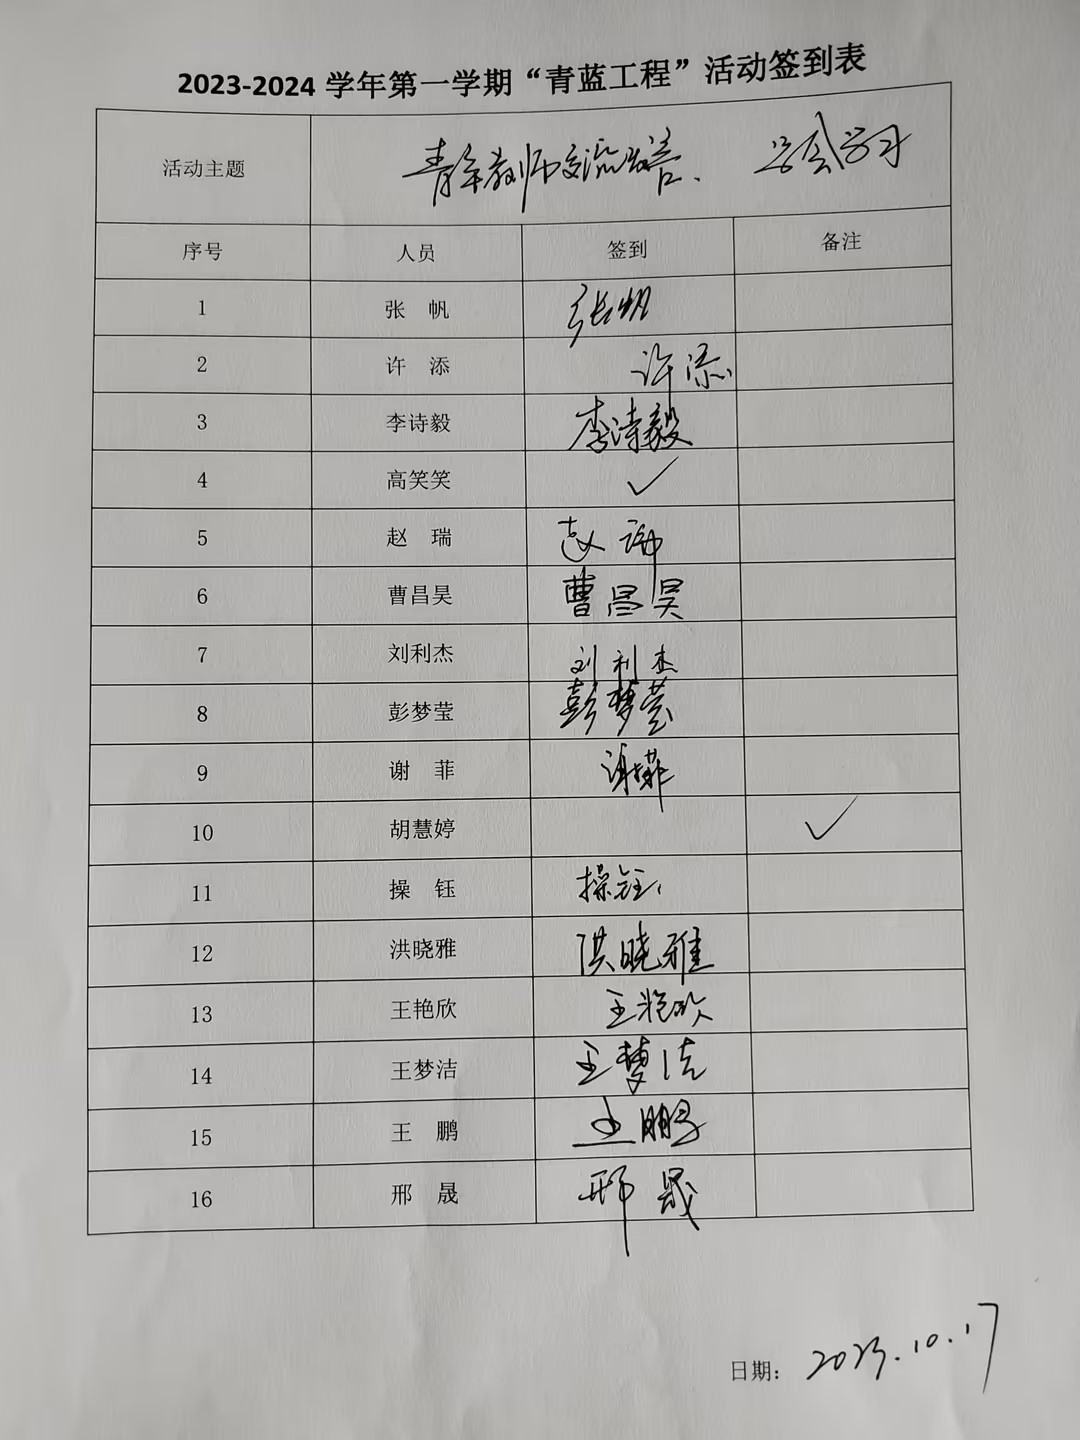 2023-2024 学年第一学期“青蓝工程”活动签到表
活动主题 青年教师交流发言、 学会学习
序号 人员 签到 备注
1 张 帆 张帆
2 许 添 许添
3 李诗毅 李诗毅
4 高笑笑 ✓
5 赵 瑞 赵瑞
6 曹昌昊 曹昌昊
7 刘利杰 刘利杰
8 彭梦莹 彭梦莹
9 谢 菲 谢菲
10 胡慧婷 ✓
11 操 钰 操钰
12 洪晓雅 洪晓雅
13 王艳欣 王艳欣
14 王梦洁 王梦洁
15 王 鹏 王鹏
16 邢 晟 邢晟
日期： 2023.10.17